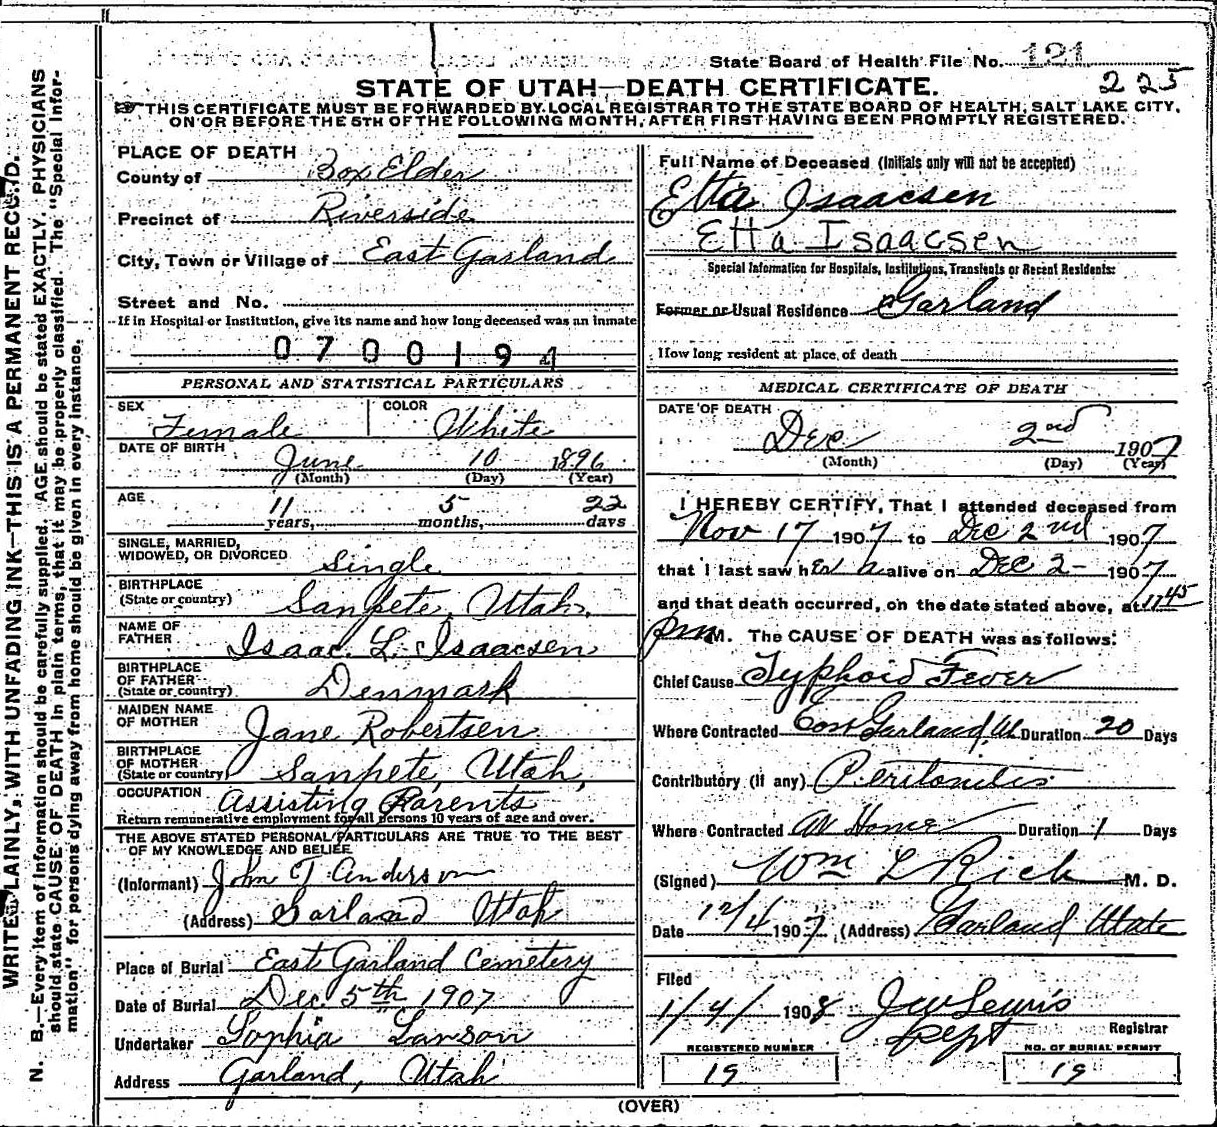 State Board of Health File No. 121
225
STATE OF UTAH—DEATH CERTIFICATE.
THIS CERTIFICATE MUST BE FORWARDED BY LOCAL REGISTRAR TO THE STATE BOARD OF HEALTH, SALT LAKE CITY,
ON OR BEFORE THE 5TH OF THE FOLLOWING MONTH, AFTER FIRST HAVING BEEN PROMPTLY REGISTERED.
WRITE PLAINLY, WITH UNFADING INK—THIS IS A PERMANENT RECORD.
N. B.—Every item of information should be carefully supplied. AGE should be stated EXACTLY. PHYSICIANS
should state CAUSE OF DEATH in plain terms, that it may be properly classified. The "Special Infor-
mation" for persons dying away from home should be given in every instance.
PLACE OF DEATH
County of Box Elder
Precinct of Riverside
City, Town or Village of East Garland
Street and No.
If in Hospital or Institution, give its name and how long deceased was an inmate
0700194
PERSONAL AND STATISTICAL PARTICULARS
SEX Female COLOR White
DATE OF BIRTH June 10 1896
(Month) (Day) (Year)
AGE 11 years, 5 months, 22 days
SINGLE, MARRIED,
WIDOWED, OR DIVORCED Single
BIRTHPLACE
(State or country) Sanpete, Utah,
NAME OF
FATHER Isaac L. Isaacsen
BIRTHPLACE
OF FATHER
(State or country) Denmark
MAIDEN NAME
OF MOTHER Jane Robertsen
BIRTHPLACE
OF MOTHER
(State or country) Sanpete, Utah,
OCCUPATION Assisting Parents
Return remunerative employment for all persons 10 years of age and over.
THE ABOVE STATED PERSONAL PARTICULARS ARE TRUE TO THE BEST
OF MY KNOWLEDGE AND BELIEF
(Informant) John T Anderson
(Address) Garland Utah
Place of Burial East Garland Cemetery
Date of Burial Dec. 5th 1907
Undertaker Sophia Larson
Address Garland, Utah
Full Name of Deceased (Initials only will not be accepted)
Etta Isaacsen
Etta Isaacsen
Special Information for Hospitals, Institutions, Transients or Recent Residents:
Former or Usual Residence Garland
How long resident at place of death
MEDICAL CERTIFICATE OF DEATH
DATE OF DEATH
Dec 2nd 1907
(Month) (Day) (Year)
I HEREBY CERTIFY, That I attended deceased from
Nov 17 1907 to Dec 2nd 1907
that I last saw her alive on Dec 2 1907
and that death occurred, on the date stated above, at 11 45
pm M. The CAUSE OF DEATH was as follows:
Chief Cause Typhoid Fever
Where Contracted East Garland, Duration 20 Days
Contributory (if any) Peritonitis
Where Contracted At Home Duration 1 Days
(Signed) Wm L Rich M. D.
Date 12/4 1907 (Address) Garland Utah
Filed
1/4/ 1908 J W Lewis
Dept Registrar
REGISTERED NUMBER
19
NO. OF BURIAL PERMIT
19
(OVER)